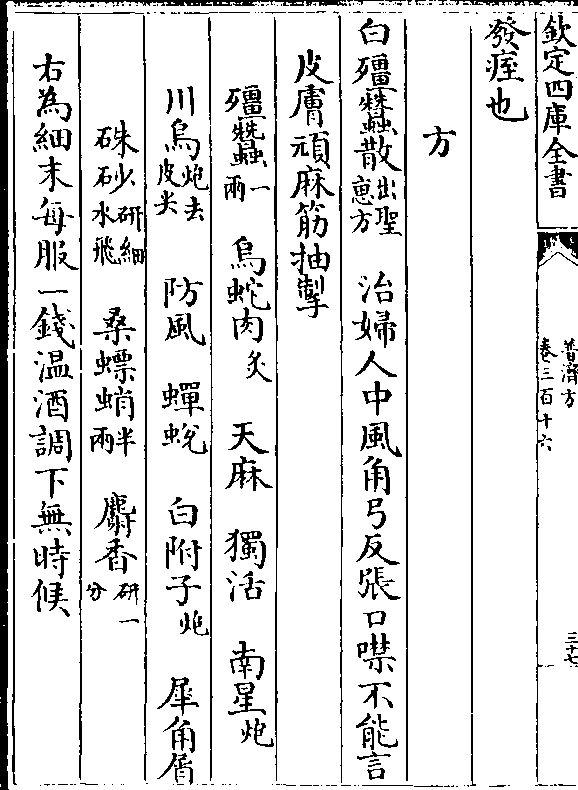 欽定四庫全書
普濟方
卷三百十六
三十七
發痓也
方
白殭蠶散出聖惠方 治婦人中風角弓反張口噤不能言
皮膚頑麻筋抽掣
殭蠶一兩 烏蛇肉炙 天麻 獨活 南星炮
川烏炮去皮尖 防風 蟬蛻 白附子炮 犀角屑
硃砂研細水飛 桑螵蛸半兩 麝香研一分
右為細末每服一錢温酒調下無時候